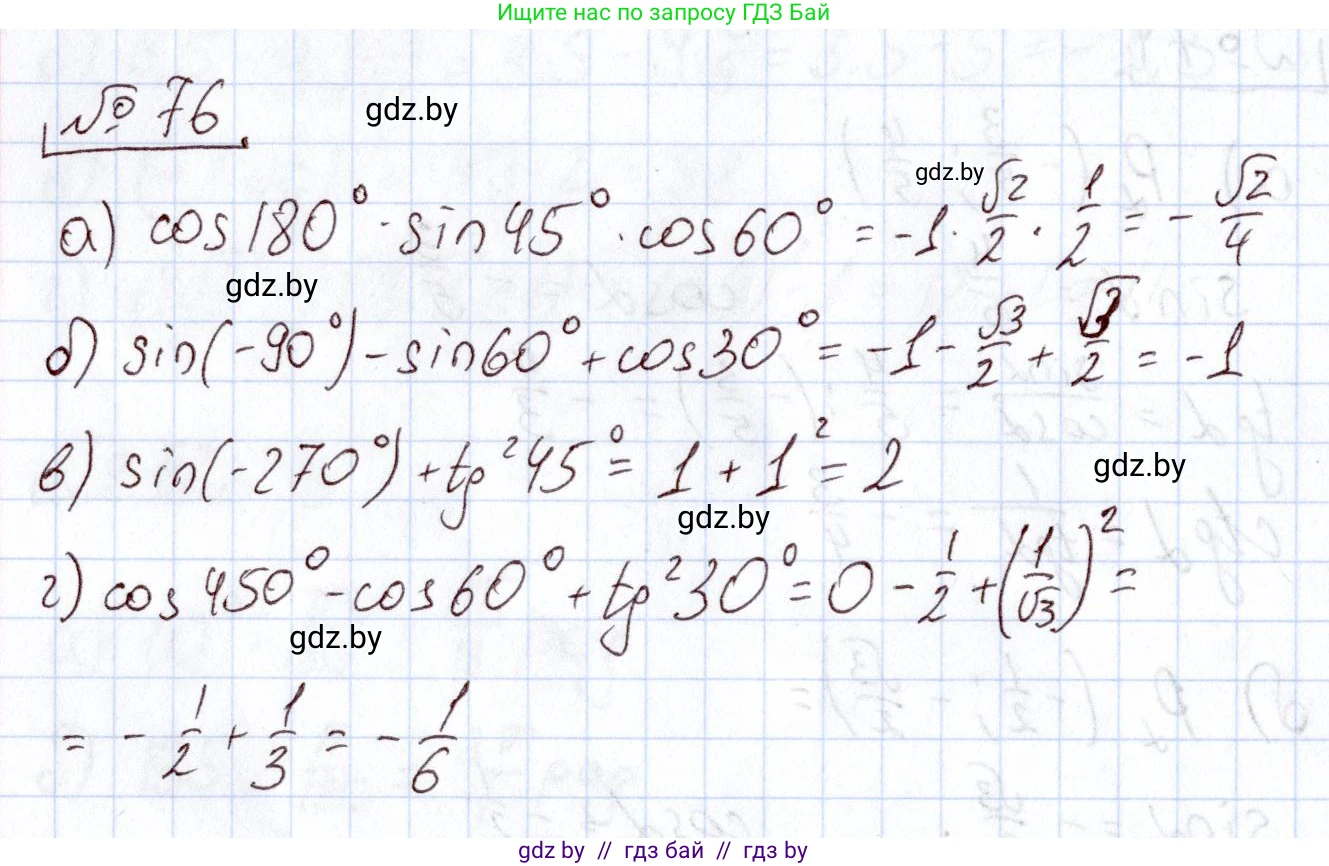 Ищите нас по запросу ГДЗ Бай
№ 76
gdz.by
gdz.by
а) cos 180° · sin 45° · cos 60° = -1 · √2/2 · 1/2 = - √2/4
gdz.by
б) sin(-90°) - sin 60° + cos 30° = -1 - √3/2 + √3/2 = -1
в) sin(-270°) + tg² 45° = 1 + 1² = 2
gdz.by
gdz.by
г) cos 450° - cos 60° + tg² 30° = 0 - 1/2 + (1/√3)² =
gdz.by
= - 1/2 + 1/3 = - 1/6
gdz by // гдз бай // гдз by